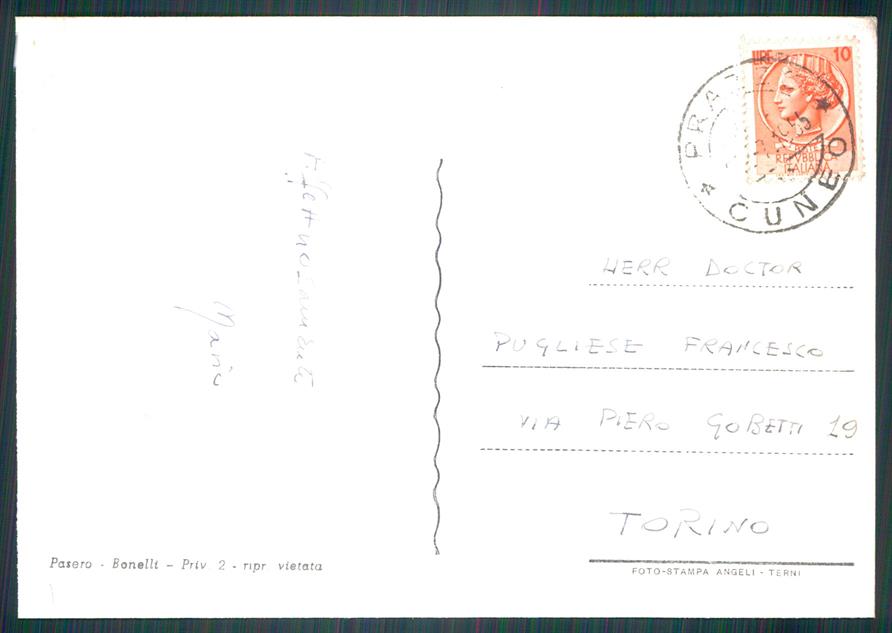 LIRE 10
POSTE
REPVBBLICA
ITALIANA
CUNEO
Affettuosamente
Maria
HERR DOCTOR
PUGLIESE FRANCESCO
VIA PIERO GOBETTI 19
TORINO
Pasero - Bonelli - Priv 2 - ripr vietata
FOTO-STAMPA ANGELI - TERNI